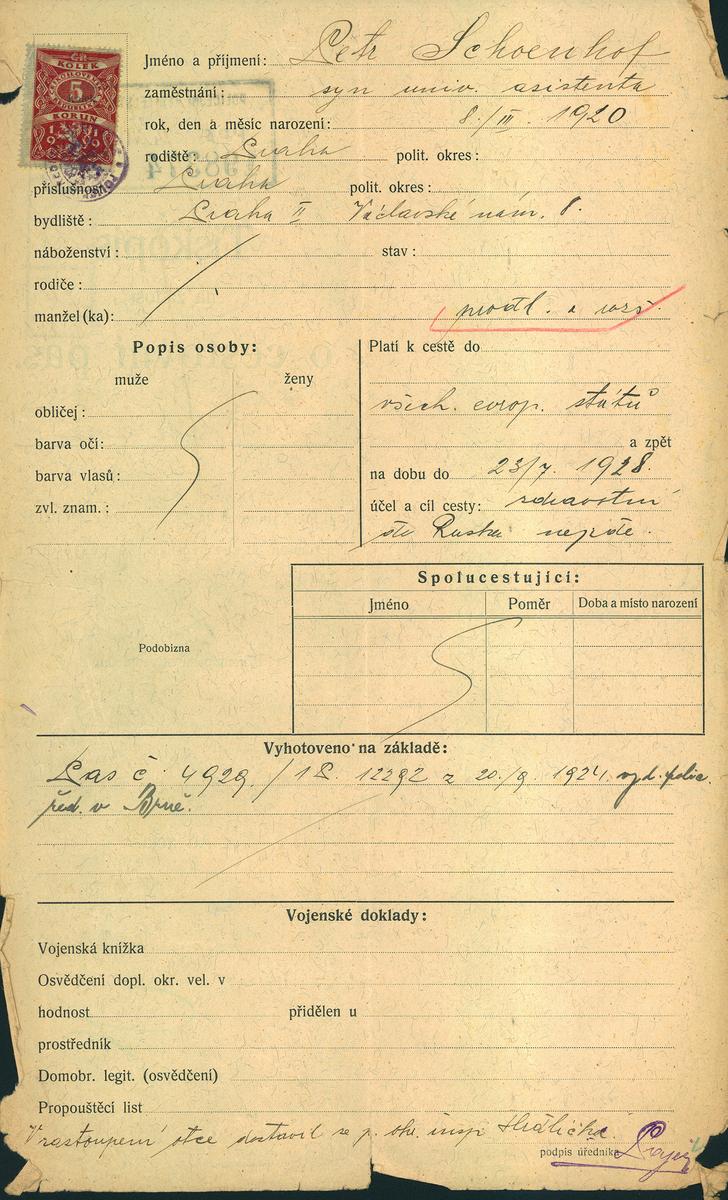 KOLEK
5
KORUN
Jméno a příjmení: Petr Schoenhof
zaměstnání: syn univ. asistenta
rok, den a měsíc narození: 8./III. 1920
rodiště: Praha polit. okres:
příslušnost: Praha polit. okres:
bydliště: Praha II Václavské nám. 8.
náboženství: stav:
rodiče:
manžel(ka): prodl. a rozš.
Popis osoby:
muže ženy
obličej:
barva očí:
barva vlasů:
zvl. znam.:
Platí k cestě do
všech. evrop. států
a zpět
na dobu do 23/7. 1928.
účel a cíl cesty: zdravotní
do Ruska nejede.
Spolucestující:
Jméno Poměr Doba a místo narození
Podobizna
Vyhotoveno na základě:
Pas č. 4929/18. 12292 z 20./9. 1924. vyd. polic.
řed. v Brně.
Vojenské doklady:
Vojenská knížka
Osvědčení dopl. okr. vel. v
hodnost přidělen u
prostředník
Domobr. legit. (osvědčení)
Propouštěcí list
V zastoupení otce dostavil se p. okr. insp.
podpis úředníka